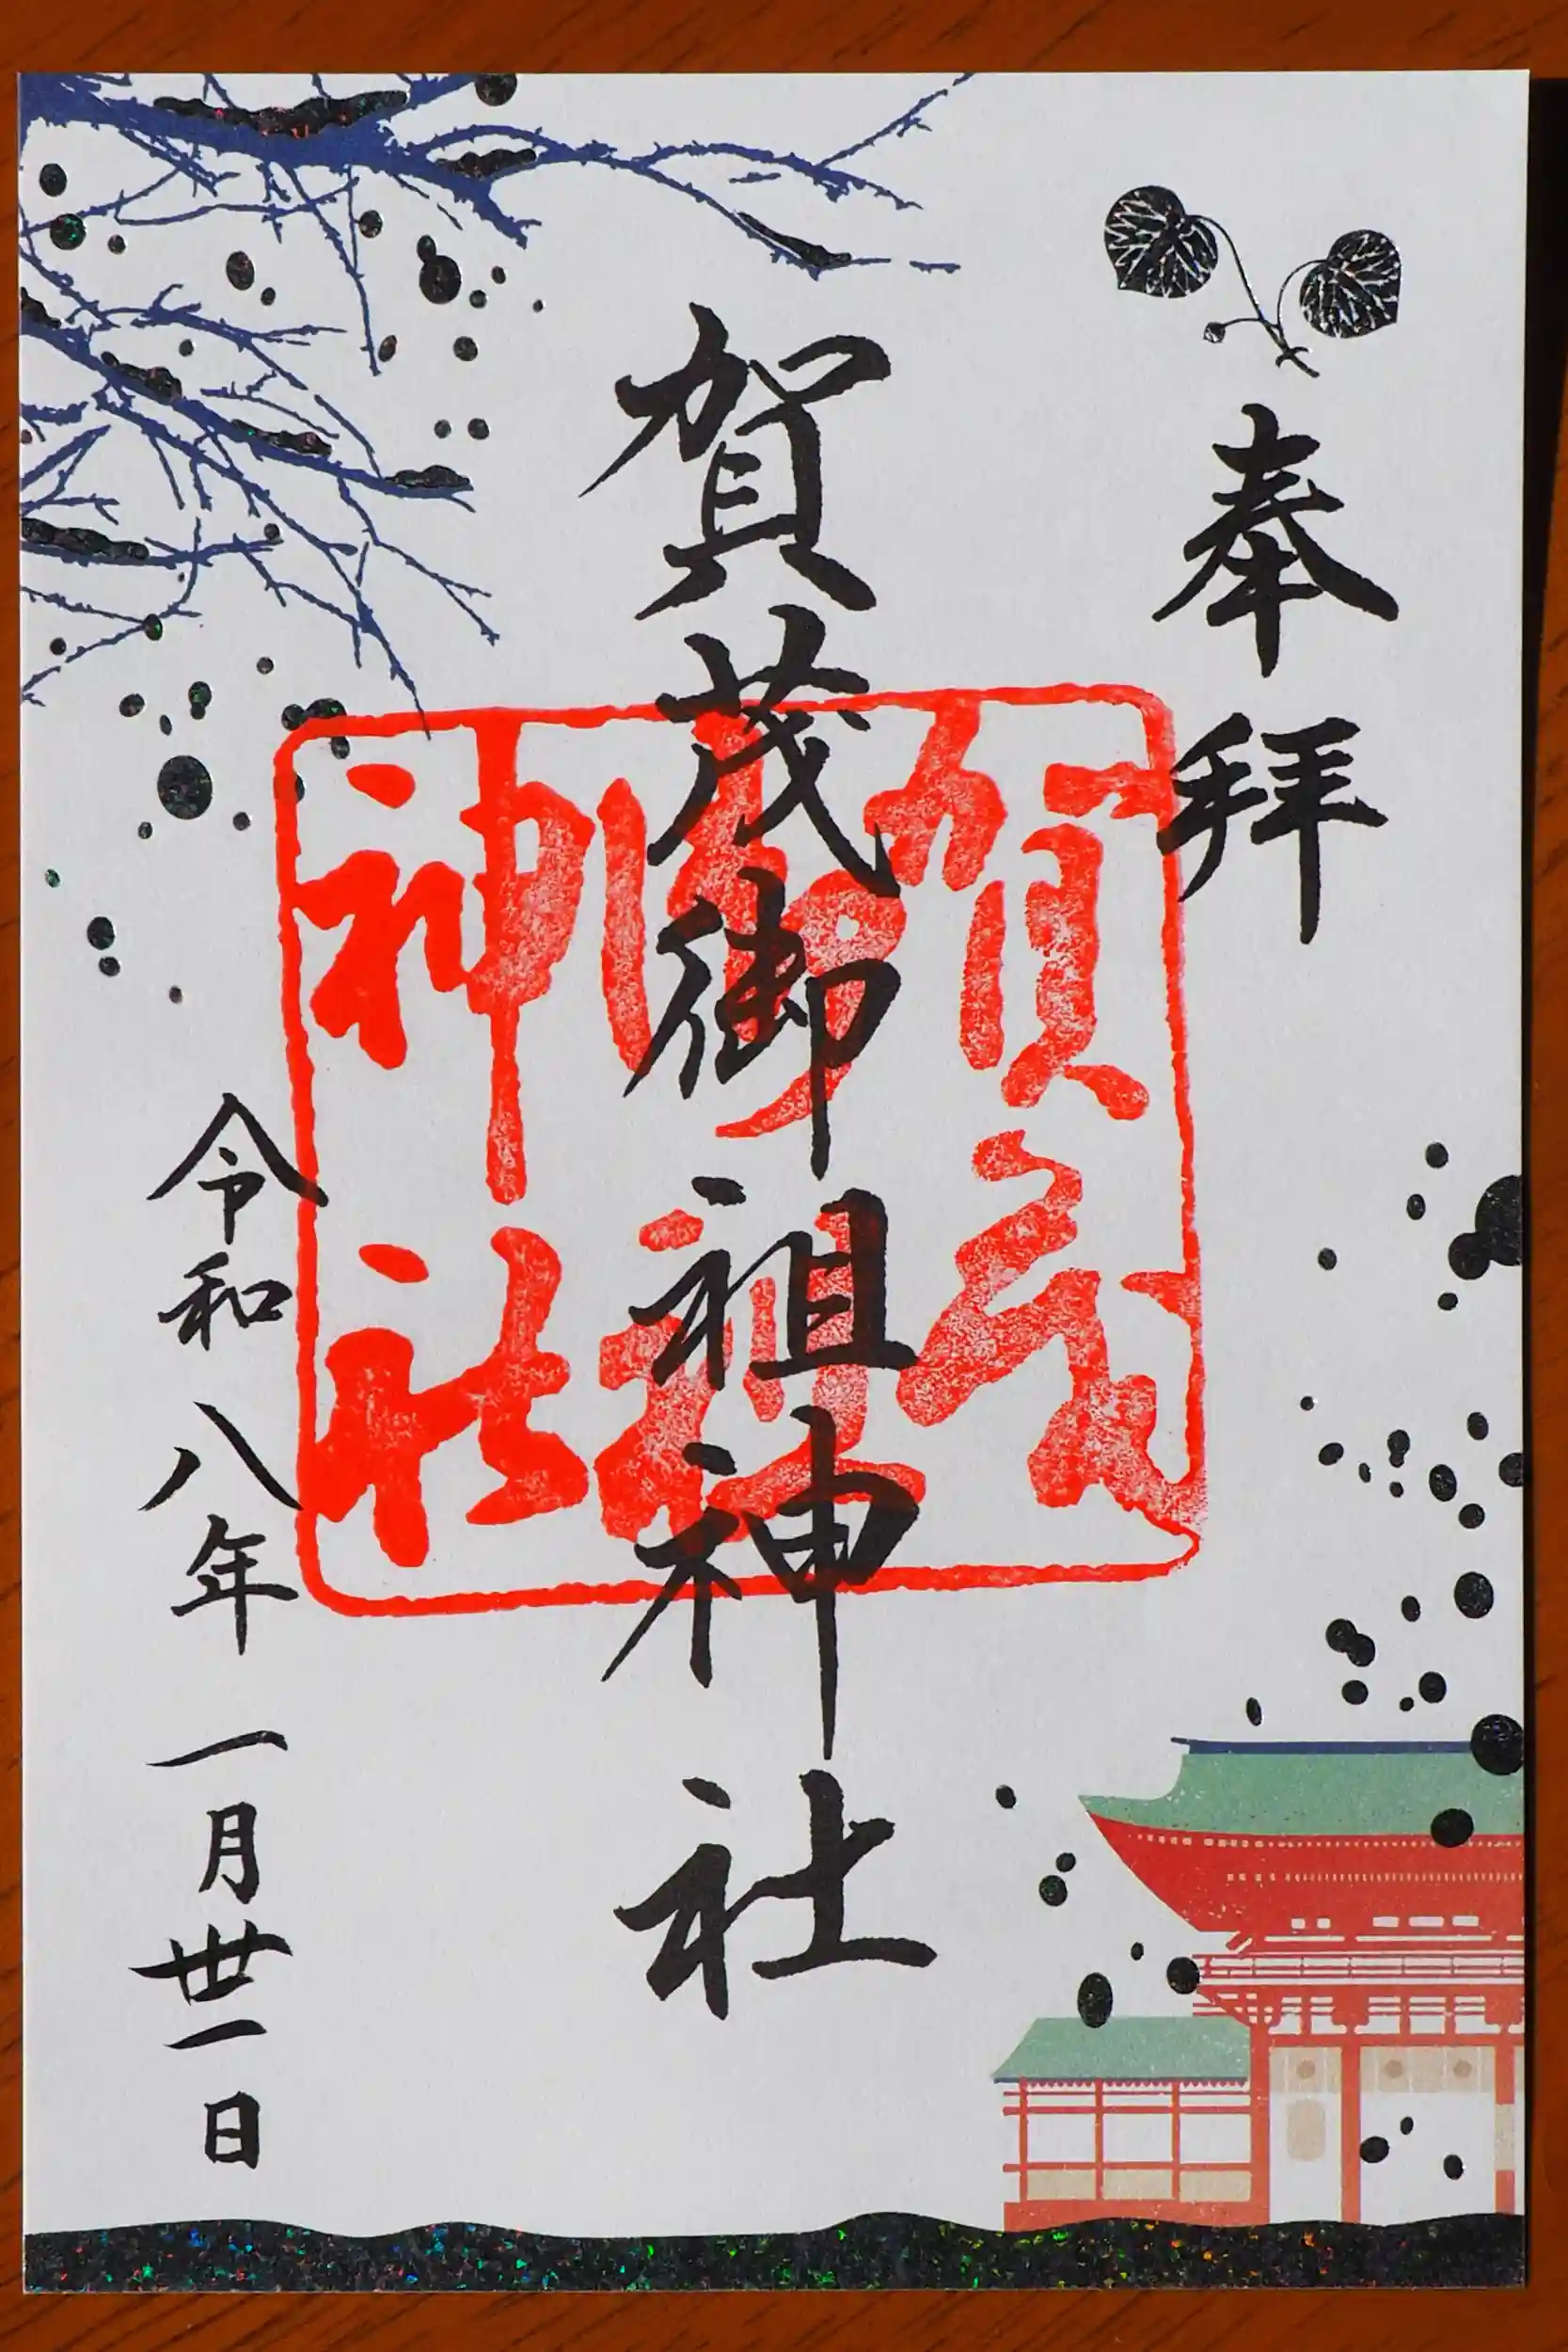 奉拝
賀茂御祖神社
賀茂
御祖
神社
令和八年一月卅一日